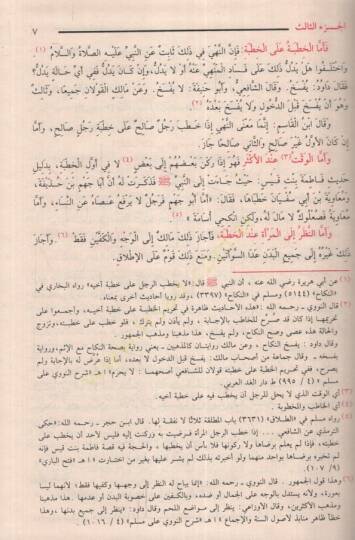 الجزء الثالث ٧
فأما الخطبة على الخطبة: فإن النهي في ذلك ثابت عن النبي عليه الصلاة والسلام (١)
واختلفوا هل يدل ذلك على فساد المنهي عنه أو لا يدل، وإن كان يدل ففي أي حالة يدل؟
فقال داود: يفسخ. وقال الشافعي، وأبو حنيفة: لا يفسخ. وعن مالك القولان جميعًا، وثالث
وهو أن يفسخ قبل الدخول ولا يفسخ بعده (٢).
وقال ابن القاسم: إنما معنى النهي إذا خطب رجل صالح على خطبة رجل صالح، وأما
إن كان الأول غير صالح والثاني صالحًا جاز.
وأما الوقت (٣) عند الأكثر فهو إذا ركن بعضهم إلى بعض (٤) لا في أول الخطبة، بدليل
حديث فاطمة بنت قيس، حيث جاءت إلى النبي ﷺ فذكرت له أن أبا جهم بن حذيفة،
ومعاوية بن أبي سفيان خطباها، فقال: «أما أبو جهم فرجل لا يرفع عصاه عن النساء، وأما
معاوية فصعلوك لا مال له، ولكن انكحي أسامة» (٥)
وأما النظر إلى المرأة عند الخطبة، فأجاز ذلك مالك إلى الوجه والكفين فقط (٦). وأجاز
ذلك غيره إلى جميع البدن عدا السوأتين. ومنع ذلك قوم على الإطلاق.
(١) عن أبي هريرة رضي الله عنه، أن النبي ﷺ قال: «لا يخطب الرجل على خطبة أخيه» رواه البخاري في
النكاح» (٥١٤٤) ومسلم في «النكاح» (٣٣٩٧)، وقد رويا أحاديث أخرى بمعناه.
(٢) قال النووي - رحمه الله -: «هذه الأحاديث ظاهرة في تحريم الخطبة على خطبة أخيه، وأجمعوا على
تحريمها إذا كان قد صرح للخاطب بالإجابة، ولم يأذن ولم يترك، فلو خطب على خطبته، وتزوج
والحالة هذه عصى وصح النكاح، ولم يفسخ، هذا مذهبنا ومذهب الجمهور.
وقال داود: يفسخ النكاح، وعن مالك روايتان كالمذهبين - يعني رواية بصحة النكاح مع الإثم، ورواية
بفسخه - وقال جماعة من أصحاب مالك: يفسخ قبل الدخول لا بعده، أما إذا عرض له بالإجابة ولم
يصرح، ففي تحريم الخطبة على خطبته قولان للشافعي أصحهما: لا يحرم» ا هـ «شرح النووي على
مسلم» (٤ / ٩٩٥) ط دار الغد العربي.
(٣) أي الوقت الذي لا يحل للرجل أن يخطب فيه على خطبة أخيه.
(٤) أي الخاطب والمخطوبة.
(٥) رواه مسلم في «الطلاق» (٣٦٣١) باب المطلقة ثلاثًا لا نفقة لها. قال ابن حجر - رحمه الله -: «حكى
الترمذي عن الشافعي... إذا خطب الرجل المرأة فرضيت به وركنت إليه فليس لأحد أن يخطب على
خطبته، فإذا لم يعلم برضاها ولا ركونها فلا بأس أن يخطبها، والحجة فيه قصة فاطمة بنت قيس فإنه
لم تخبره برضاها بواحد منهما ولو أخبرته بذلك لم يشر عليها بغير من اختارت» ا هـ «فتح الباري»
(٩ / ١٠٧).
(٦) وهذا قول الجمهور. قال النووي - رحمه الله -: «إنما يباح له النظر إلى وجهها وكفيها فقط؛ لأنهما ليسا
بعورة، ولأنه يستدل بالوجه على الجمال أو ضده، وبالكفين على خصوبة البدن أو عدمها. هذا مذهبنا
ومذهب الأكثرين، وقال الأوزاعي: ينظر إلى مواضع اللحم وقال داود: «ينظر إلى جميع بدنها وهذا
خطأ ظاهر منابذ لأصول السنة والإجماع» ا هـ «شرح النووي على مسلم» (٤ / ١٠١٦).